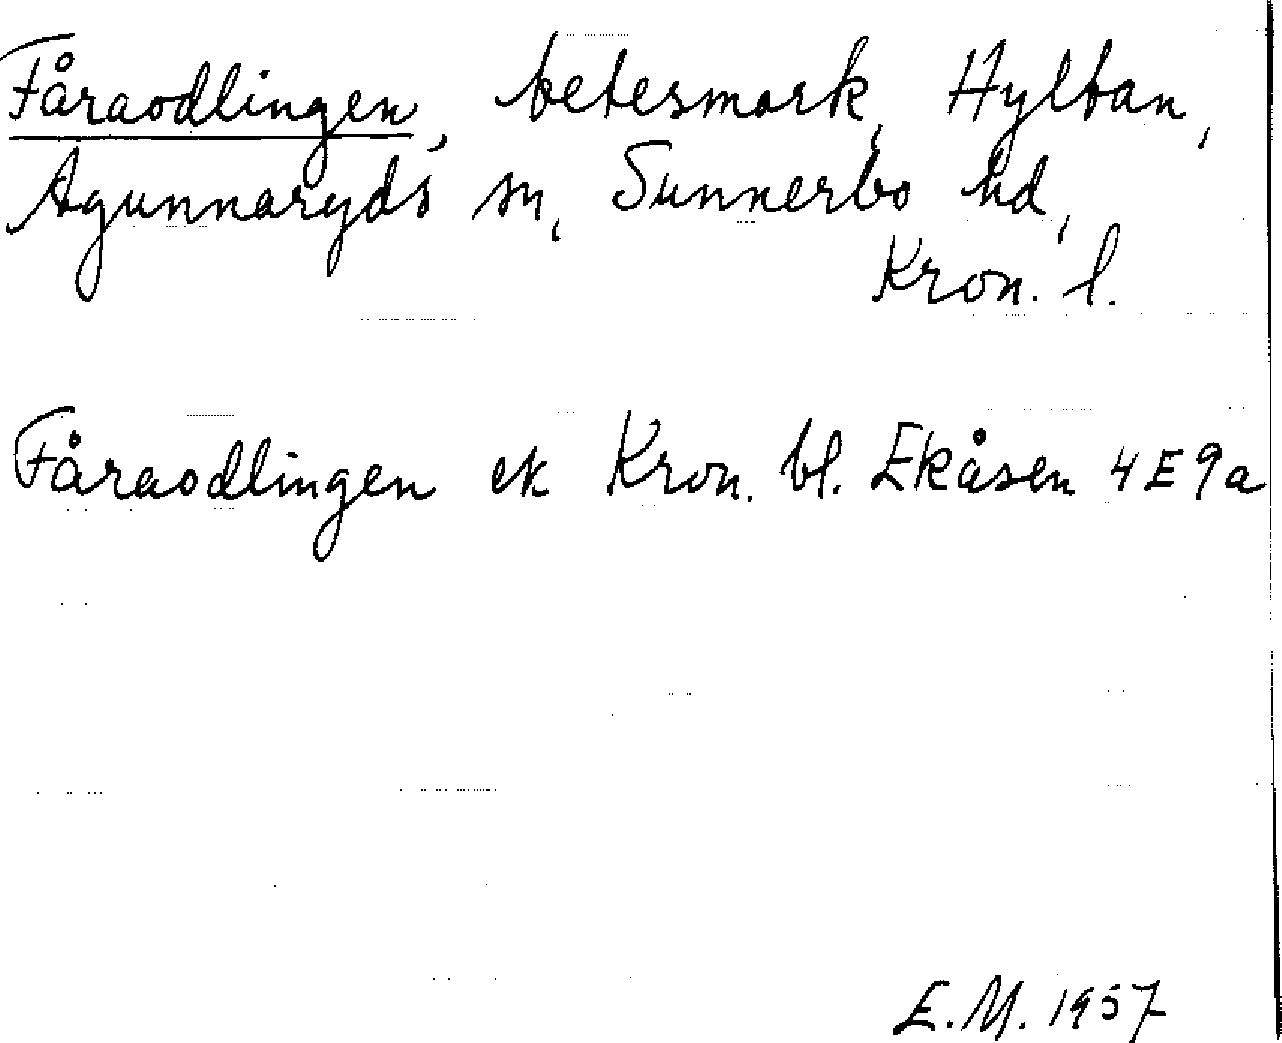 Fåraodlingen, betesmark, Hyltan,
Agunnaryds sn, Sunnerbo hd,
Kron. l.
Fåraodlingen ek Kron. bl. Ekåsen 4E9a
E.M. 1957